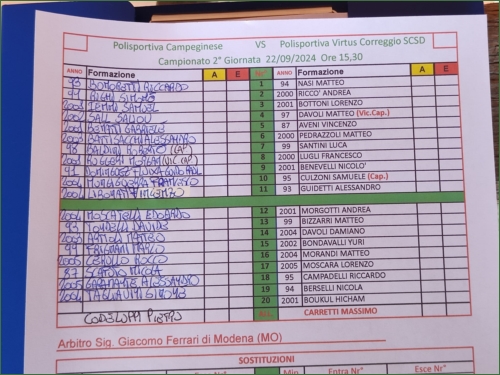 Polisportiva Campeginese VS Polisportiva Virtus Correggio SCSD
Campionato 2° Giornata 22/09/2024 Ore 15,30
ANNO Formazione A E Nr° ANNO Formazione A E
93 BONORETTI RICCARDO 1 94 NASI MATTEO
99 RIGHI SIMONE 2 2000 RICCO' ANDREA
SAMUEL 3 2001 BOTTONI LORENZO
SALL SALIOU 4 97 DAVOLI MATTEO (Vic.Cap.)
GABRIELE 5 87 AVENI VINCENZO
ALESSANDRO 6 2000 PEDRAZZOLI MATTEO
98 BALDINI ROBERTO (CAP) 7 99 SANTINI LUCA
2001 RUGGERI MORGAN (VIC CAP) 8 2000 LUGLI FRANCESCO
91 9 2001 BENEVELLI NICOLO'
FRANCESCO 10 95 CULZONI SAMUELE (Cap.)
11 93 GUIDETTI ALESSANDRO
EDOARDO 12 2001 MORGOTTI ANDREA
93 TONDELLI DAVIDE 13 99 BIZZARRI MATTEO
MATTEO 14 2004 DAVOLI DAMIANO
99 FRIGNANI MARCO 15 2002 BONDAVALLI YURI
ROCCO 16 2004 MORANDI MATTEO
87 NICOLA 17 2005 MOSCARA LORENZO
2005 ALESSANDRO 18 95 CAMPADELLI RICCARDO
2006 TAGLIAVINI 19 94 BERSELLI NICOLA
20 2001 BOUKUL HICHAM
CODELUPPI PIETRO ALL. CARRETTI MASSIMO
Arbitro Sig. Giacomo Ferrari di Modena (MO)
SOSTITUZIONI
Min. Entra Nr° Esce Nr°